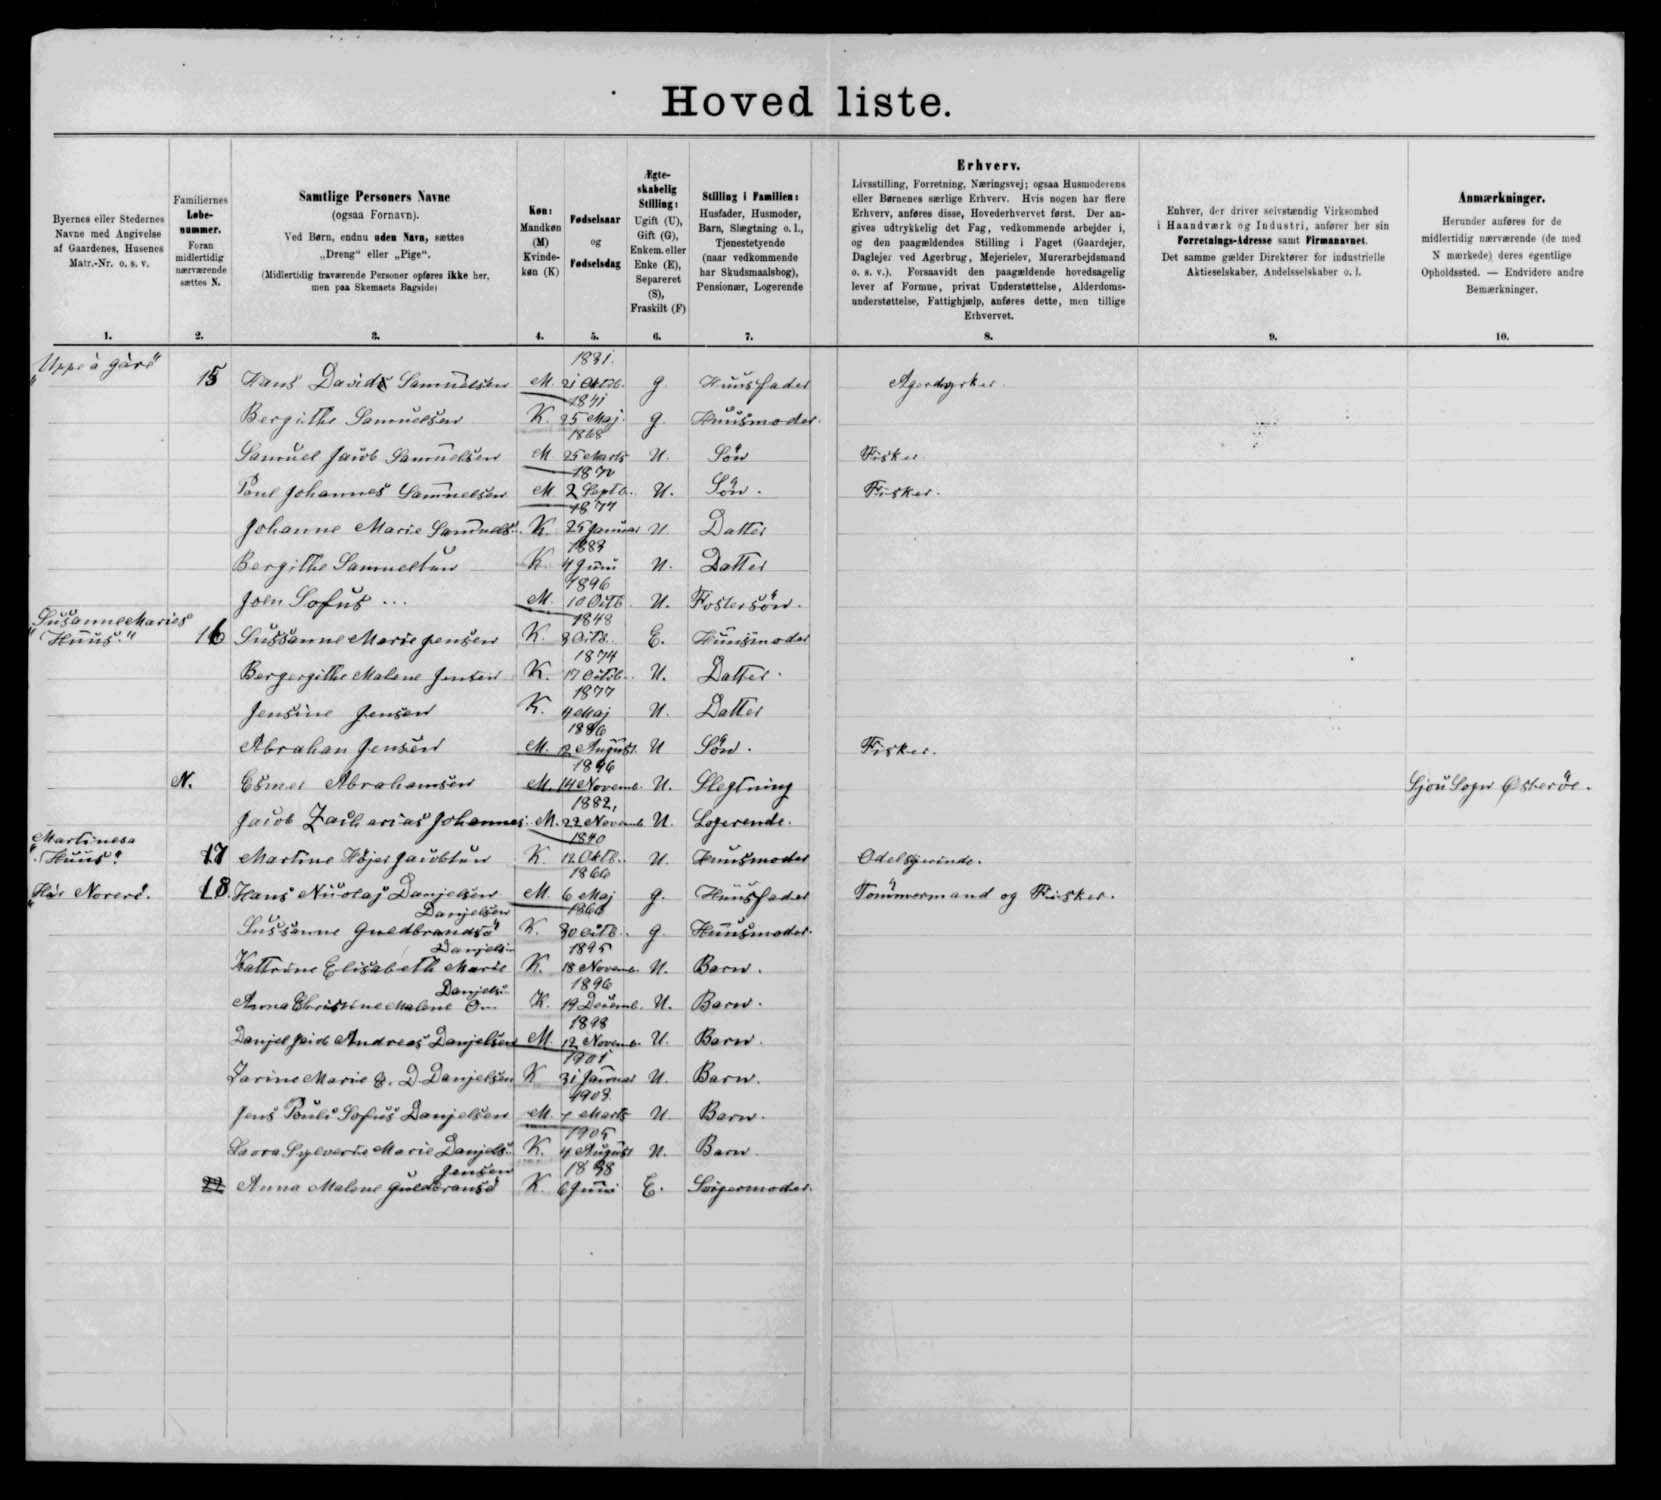 Hoved liste.
Byernes eller Stedernes Navne med Angivelse af Gaardenes, Husenes Matr.-Nr. o. s. v.
Familiernes Løbenummer. Foran midlertidig nærværende sættes N.
Samtlige Personers Navne
(ogsaa Fornavn).
Ved Børn, endnu uden Navn, sættes
„Dreng“ eller „Pige“.
(Midlertidig fraværende Personer opføres ikke her,
men paa Skemaets Bagside)
Køn: Mandkøn (M) Kvindekøn (K)
Fødselsaar og Fødselsdag
Ægteskabelig Stilling: Ugift (U), Gift (G), Enkem. eller Enke (E), Separeret (S), Fraskilt (F)
Stilling i Familien: Husfader, Husmoder, Barn, Slægtning o. l., Tjenestetyende (naar vedkommende har Skudsmaalsbog), Pensionær, Logerende
Erhverv.
Livsstilling, Forretning, Næringsvej; ogsaa Husmoderens
eller Børnenes særlige Erhverv. Hvis nogen har flere
Erhverv, anføres disse, Hovederhvervet først. Der an-
gives udtrykkelig det Fag, vedkommende arbejder i,
og den paagældendes Stilling i Faget (Gaardejer,
Daglejer ved Agerbrug, Mejerielev, Murerarbejdsmand
o. s. v.). Forsaavidt den paagældende hovedsagelig
lever af Formue, privat Understøttelse, Alderdoms-
understøttelse, Fattighjælp, anføres dette, men tillige
Erhvervet.
Enhver, der driver selvstændig Virksomhed
i Haandværk og Industri, anfører her sin
Forretnings-Adresse samt Firmanavnet.
Det samme gælder Direktører for industrielle
Aktieselskaber, Andelsselskaber o. l.
Anmærkninger.
Herunder anføres for de
midlertidig nærværende (de med
N mærkede) deres egentlige
Opholdssted. — Endvidere andre
Bemærkninger.
1. 2. 3. 4. 5. 6. 7. 8. 9. 10.
"Uppe à gàre" 1831.
15 Hans Davids Samuelsen M. 21 Oktb. g. Huusfader Agerdyrker.
1841
Bergithe Samuelsen K. 25 Maj. g. Huusmoder.
1868
Samuel Jacob Samuelsen M 25 Marts U. Søn Fisker.
1870
Poul Johannes Samuelsen M. 2 Septb. U. Søn. Fisker.
1877
Johanne Marie Samuels. K. 25 Januar U Datter
Bergithe Samuelsen K. 4 Juni U. Datter
1896
Joen Sofus ... M. 10 Octb. U. Fostersøn.
"Susanne Maries 1848
Huus." 16 Sussanne Marie Jensen K. Octb. E. Huusmoder
1874
Malene Jensen K. 17 Octob. U. Datter.
1877
Jensine Jensen K. 4 Maj U. Datter
1886
Abrahan Jensen M. 12 August. U Søn. Fisker.
1896
N. Esmer Abrahamsen M. 14 Novemb. U. Slegtning Sjou Sogn Østerøe.
1882,
Jacob Zacharias Johannes. M. 22 Novemb U. Logerende.
"Martinesa 1840
Huus". 17 Martine Højer Jacobsen K. 12 Oktb. U. Huusmoder Odelsqvinde.
1866
18. Hans Nicolaj Danjelsen M. 6 Maj g. Huusfader Tømmermand og Fisker.
Danjelsen
Sussanne Guldbrandsd K. 30 Octb. g. Huusmoder.
Danjelsn 1895
Kattrine Elisabeth Marie K. 18 Novemb. U. Barn.
Danjelsn 1896
Anna Christine Malene K. 19 Decemb. U. Barn.
1898
Danjel Jacob Andreas Danjelsen M. 12 Novemb. U. Barn.
1901
Zarine Marie D. Danjelsen K 31 Januar U. Barn.
Jens Pouli Sofus Danjelsen M. Marts U Barn.
1905
Laora Sylverie Marie Danjels. K. 4 August U. Barn.
Jensen
22 Anna Malene Guldbransd K. 6 Juni E. Svigermoder.